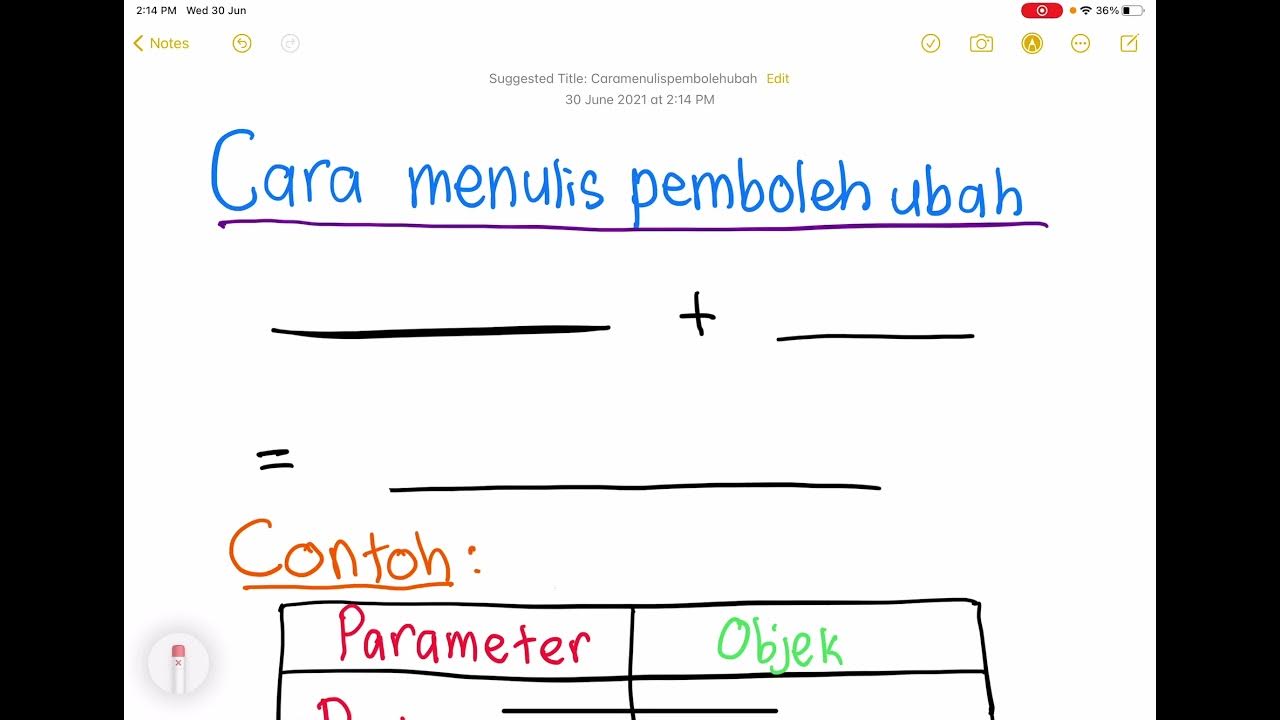 2:14 PM Wed 30 Jun 36%
Notes
Suggested Title: Caramenulispembolehubah Edit
30 June 2021 at 2:14 PM
Cara menulis pemboleh ubah
+
=
Contoh:
Parameter Objek